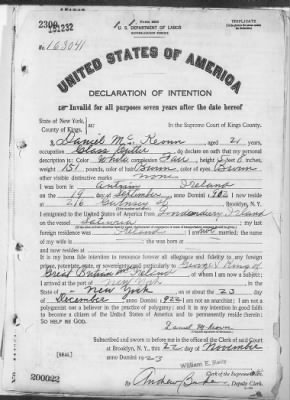 TRIPLICATE
U. S. DEPARTMENT OF LABOR
NATURALIZATION SERVICE
No. 163041
UNITED STATES OF AMERICA
DECLARATION OF INTENTION
Invalid for all purposes seven years after the date hereof
State of New York,
County of Kings. ss:
In the Supreme Court of Kings County.
I, Daniel Mc Keown, aged 21 years,
occupation Glass Cutter, do declare on oath that my personal
description is: Color White, complexion Fair, height 5 feet 8 inches,
weight 151 pounds, color of hair Brown, color of eyes Brown
other visible distinctive marks none
I was born in Antrim Ireland
on the 19 day of September, anno Domini 1902; I now reside
at Brooklyn, N. Y.
I emigrated to the United States of America from Londonderry Ireland
on the vessel; my last
foreign residence was Ireland; I am not married; the name
of my wife is; she was born at
and now resides at
It is my bona fide intention to renounce forever all allegiance and fidelity to any foreign
prince, potentate, state, or sovereignty, and particularly to George V King of
Great Britain and Ireland, of whom I am now a subject;
I arrived at the port of New York, in the
State of New York, on or about the 23 day
of December, anno Domini 1922; I am not an anarchist; I am not a
polygamist nor a believer in the practice of polygamy; and it is my intention in good faith
to become a citizen of the United States of America and to permanently reside therein:
SO HELP ME GOD.
Daniel McKeown
Subscribed and sworn to before me in the office of the Clerk of said Court
at Brooklyn, N. Y., this 22 day of November
anno Domini 1923
[SEAL]
William E. Kelly
Clerk of the Supreme Court.
By Andrew, Deputy Clerk.
200022